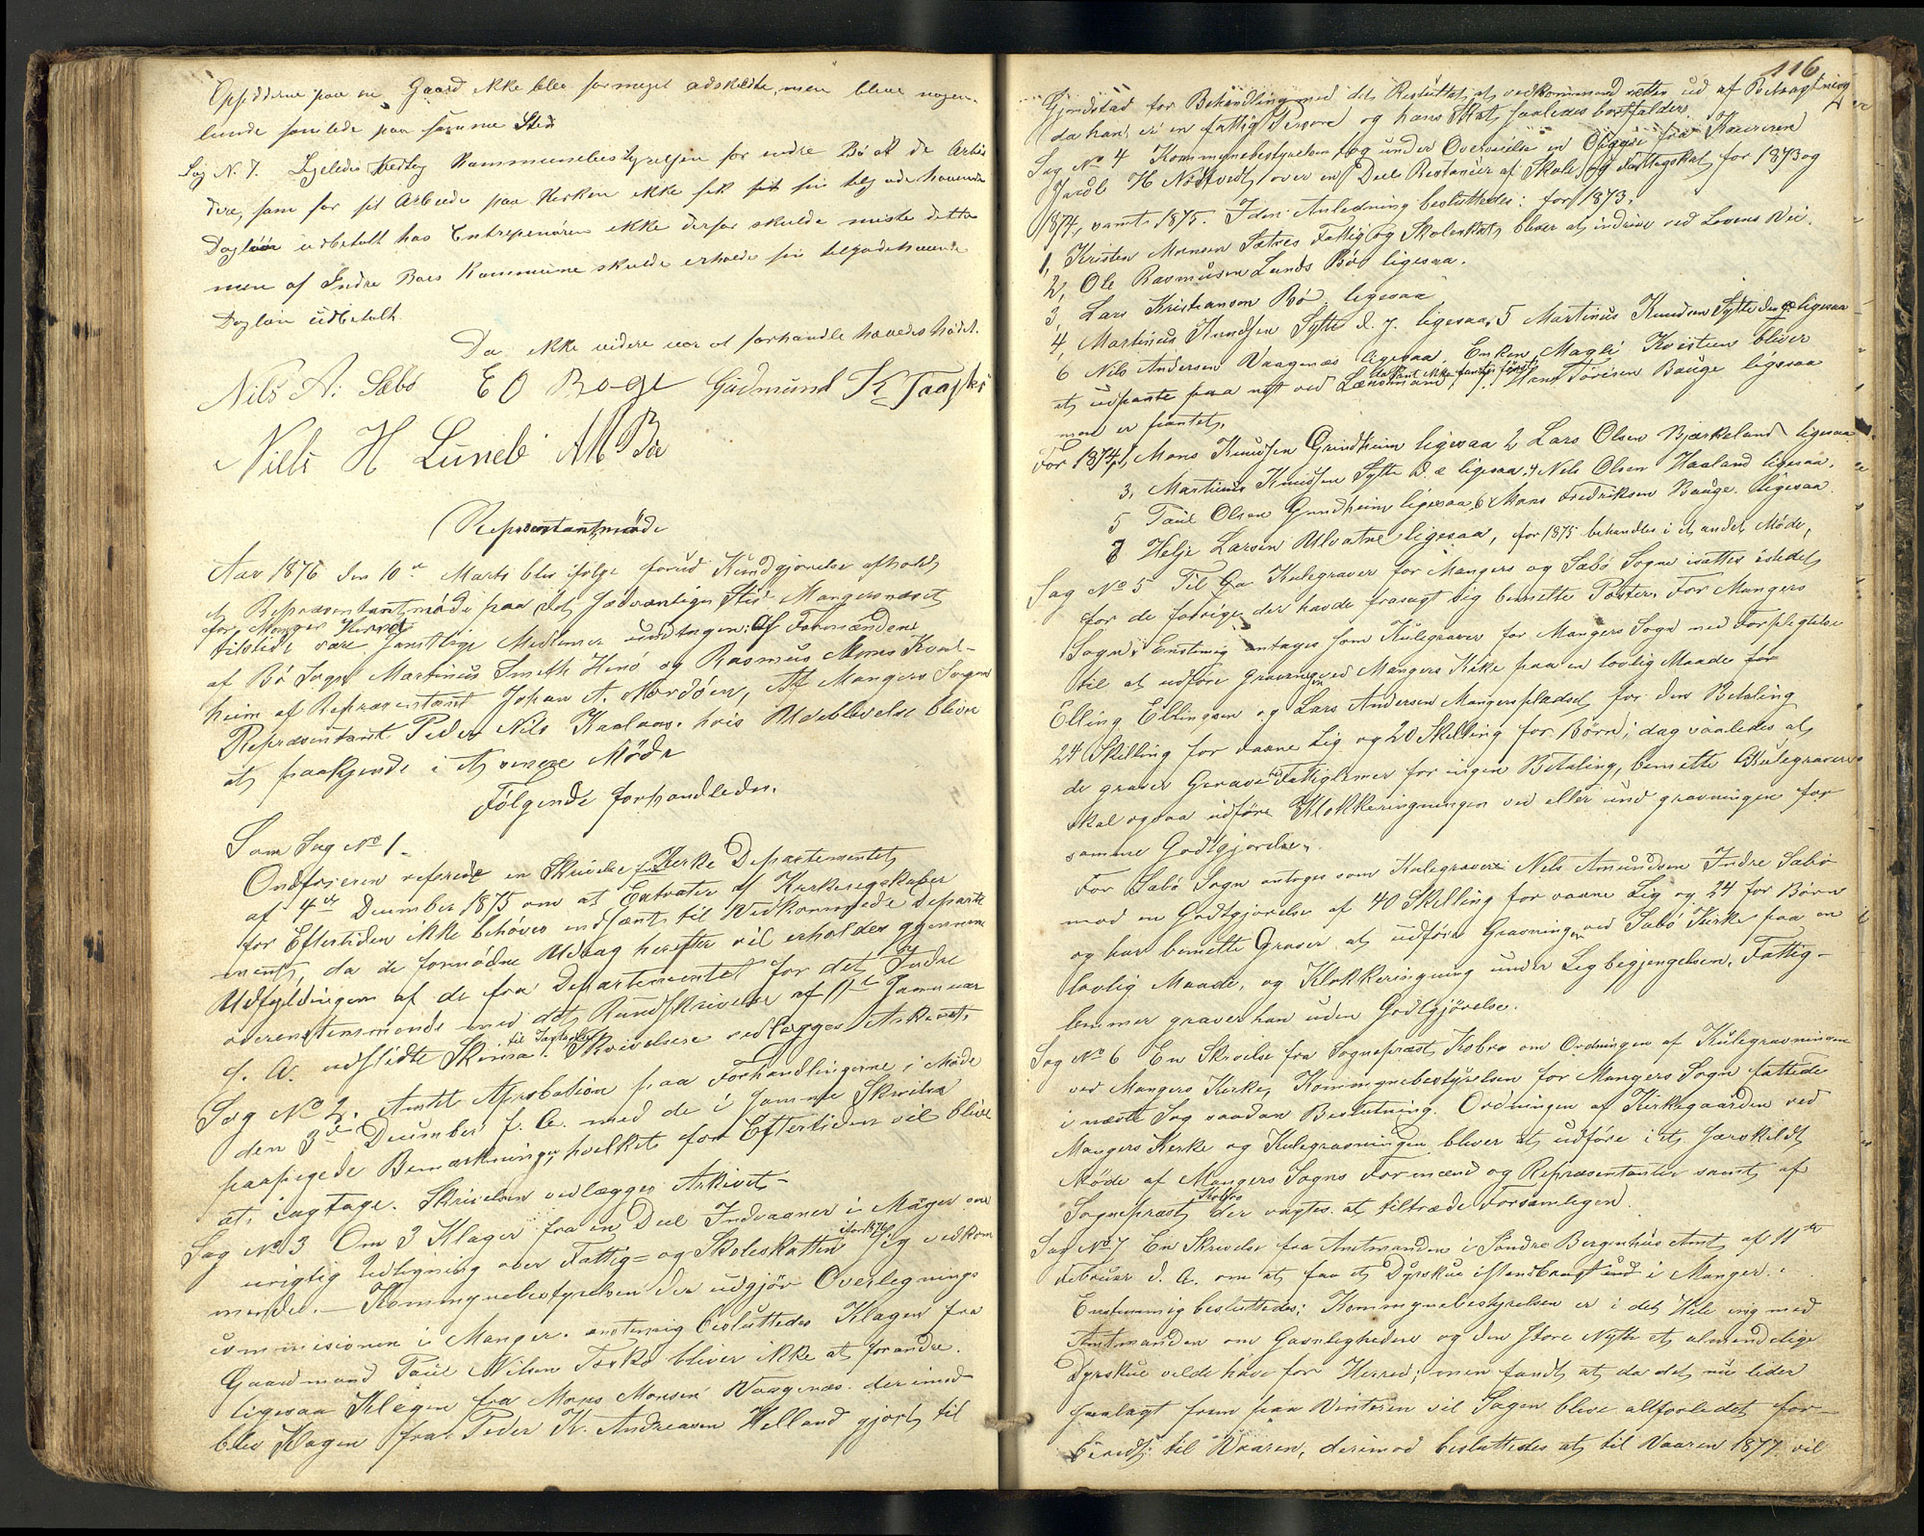 Opsidderne paa en Gaard ikke blev formeget adskildte, men bleve nogen-
lunde samlede paa samme Sted
Sag N. 7. Ligeledes vedtog Kommunebestyrelsen for indre Bø at de Arbei
dere, som for sit Arbeide paa Kirken ikke fik sit tilgodehavende
Dagløn udbetalt hos Entrepenøren ikke derfor skulde miste dette
men af Indre Boes Kommune skulde erholde sin tilgodehavende
Dagløn udbetalt.
Da ikke videre var at forhandle hævedes Mødet.
Nils A: Sæbø E O Boge Gudmund K
Niels H Lunde M Bø
Representantmøde
Aar 1876 den 10de Marts blev ifølge forud Kundgjørelse afholdt
et Repræsentantmøde paa det sædvanlige Sted Mangersnæset
for Manger Herred
tilstede vare samtlige Medlemer undtagen: Af Formændene
af Bø Sogn Martinus Smith Hernø og Rasmus Mons Kval-
heim af Repræsentant Johan A. Nordøen, Af Mangers Sogn
Repræsentant Peder Nils Kaalaas. hvis Udeblivelse bliver
at paakjende i et senere Møde
Følgende forhandledes.
Som Sag No 1.
Ordføreren refererede en Skrivelse fra Kirke Departementet
af 4de December 1875 om at Extrater af Kirkeregskaber
for Eftertiden ikke behøves indsænt til Vedkommende Departe
ment, da de fornødne Uddrag herefter vil erholdes gjennem
Udfyldingen af de fra Departementet for det Indre
overenstemmende med det Rundskrivelse af 11te Januar
d. A. udstedte Skima. Skrivelsen vedlægges Arkivet.
til Indtægt
Sag No 2. Amtets Aprobation paa Forhandlingerne i Møde
den 3de December f. A. med de i samme Skrivelse
paapegede Bemærkninger, hvilket for Eftertiden vil blive
at iagtage. Skrivelsen vedlægges Arkivet-
Sag No 3 Om 3 Klager fra en Deel Indvaaner i Manger om
urigtig Udligning over Fattig= og Skoleskatten for 1876 sig vedkom
mende. — Kommunebestyrelsen der udgjør Overlegnings
commisionen i Manger. enstemig besluttedes Klagen fra
Gaardmand Poul Nilsen Toska bliver ikke at forandre.
ligesaa Klagen fra Mons Monsen Vaagenæs. derimod
blev Klagen fra Peder K. Andreasen Helland gjort til
116
Gjenstad for Behandling med det Resultat, at vedkommende settes ud af Betragtning
da han er en fattig Person og hans Skat saaledes bortfalder.
Sag No 4 Kommunebestyrelsen tog under Overveielse en Opgave fra Kasereren
H Nødtvedt, over en Deel Restanser af Skole og Fattigskat for 1873 og
1874, samt 1875. I den Anledning besluttedes: for 1873.
1, Kristen Monsen Sætres Fattig og Skoleskat, bliver at inddrive ved Lovens Vei.
2, Ole Rasmusen Lunds Bø ligesaa.
3, Lars Kristianson Bø ligesaa
4, Martinus Knudsen Sylte d. y. ligesaa, 5 Martinus Knudsen Sylte den æ ligesaa
6 Nils Andersen Vaagenæs ligesaa. Enken Magli Kvistein bliver
at udpante paa nyt ved Lænsmand, 7. Hans Torisen Bauge ligesaa
da Pant ikke fantes først
men er pantet,
For 1874, 1, Mons Knudsen Grindheim ligesaa 2 Lars Olsen Bjærkeland ligesaa
3, Martinus Knudsen Sylte d. æ ligesaa, 4 Nels Olsen Haaland ligesaa.
5 Poul Olsen Gundheim ligesaa, 6 Mons Fredriksen Bauge ligesaa
7 Helje Larsen Ulvatne ligesaa, for 1875 behandles i et andet Møde,
Sag No 5 Til at Kulegraver for Mangers og Sæbø Sogne isættes istedet
for de forrige, der havde frasagt sig bemelte Poster. For Mangers
Sogn: Enstemig antages som Kulegraver for Mangers Sogn med Forpligtelse
til at udføre Gravningen ved Mangers Kirke paa en lovlig Maade for
Elling Ellingsen og Lars Andersen Mangerspladset for den Betaling
24 Skilling for voxne Lig og 20 Skilling for Børn; dog saaledes at
de graver Grave til Fattiglemer for ingen Betaling, bemelte Kulegravere
skal ogsaa udføre Klokkeringningen ved eller und gravningen for
samme Godtgjørelse.
For Sæbø Sogn antages som Kulegraver Nils Amundsen Indre Sæbø
mod en Godtgjørelse af 40 Skilling for voxne Lig og 24 for Børn
og har bemelte Graver at udføre Gravningen ved Sæbø Kirke paa en
lovlig Maade, og Klokkeringning under Ligbegjengelsen. Fattig-
lemmer graver han uden Godtgjørelse.
Sag No 6 En Skrivelse fra Sogneprest Kobro om Ordningen af Kulegravningen
ved Mangers Kirke, Kommunebestyrelsen for Mangers Sogn fattede
i næste Sag saadan Beslutning. Ordningen af Kirkegaarden ved
Mangers Kirke og Kulegravningen bliver at udføre i et særskildt
Møde af Mangers Sogns Formænd og Repræsentanter samt af
Kobro
Sogneprest, der ventes at tiltræde Forsamlingen.
Sag No 7 En Skrivelse fra Amtmanden i Søndre Bergenhus Amt af 11te
Februar d. A. om at faa et Dyrskue istandbragt i Manger.
Enstemmig besluttedes: Kommunebestyrelsen er i det Hele enig med
Amtmanden om Gavnligheden og den store Nytte et almindelige
Dyrskue vilde have for Herred; men fandt at da det nu lider
saalagt frem paa Vinteren vil Sagen blive altforledet for-
beredt til Vaaren, derimod besluttedes at til Vaaren 1877 vil